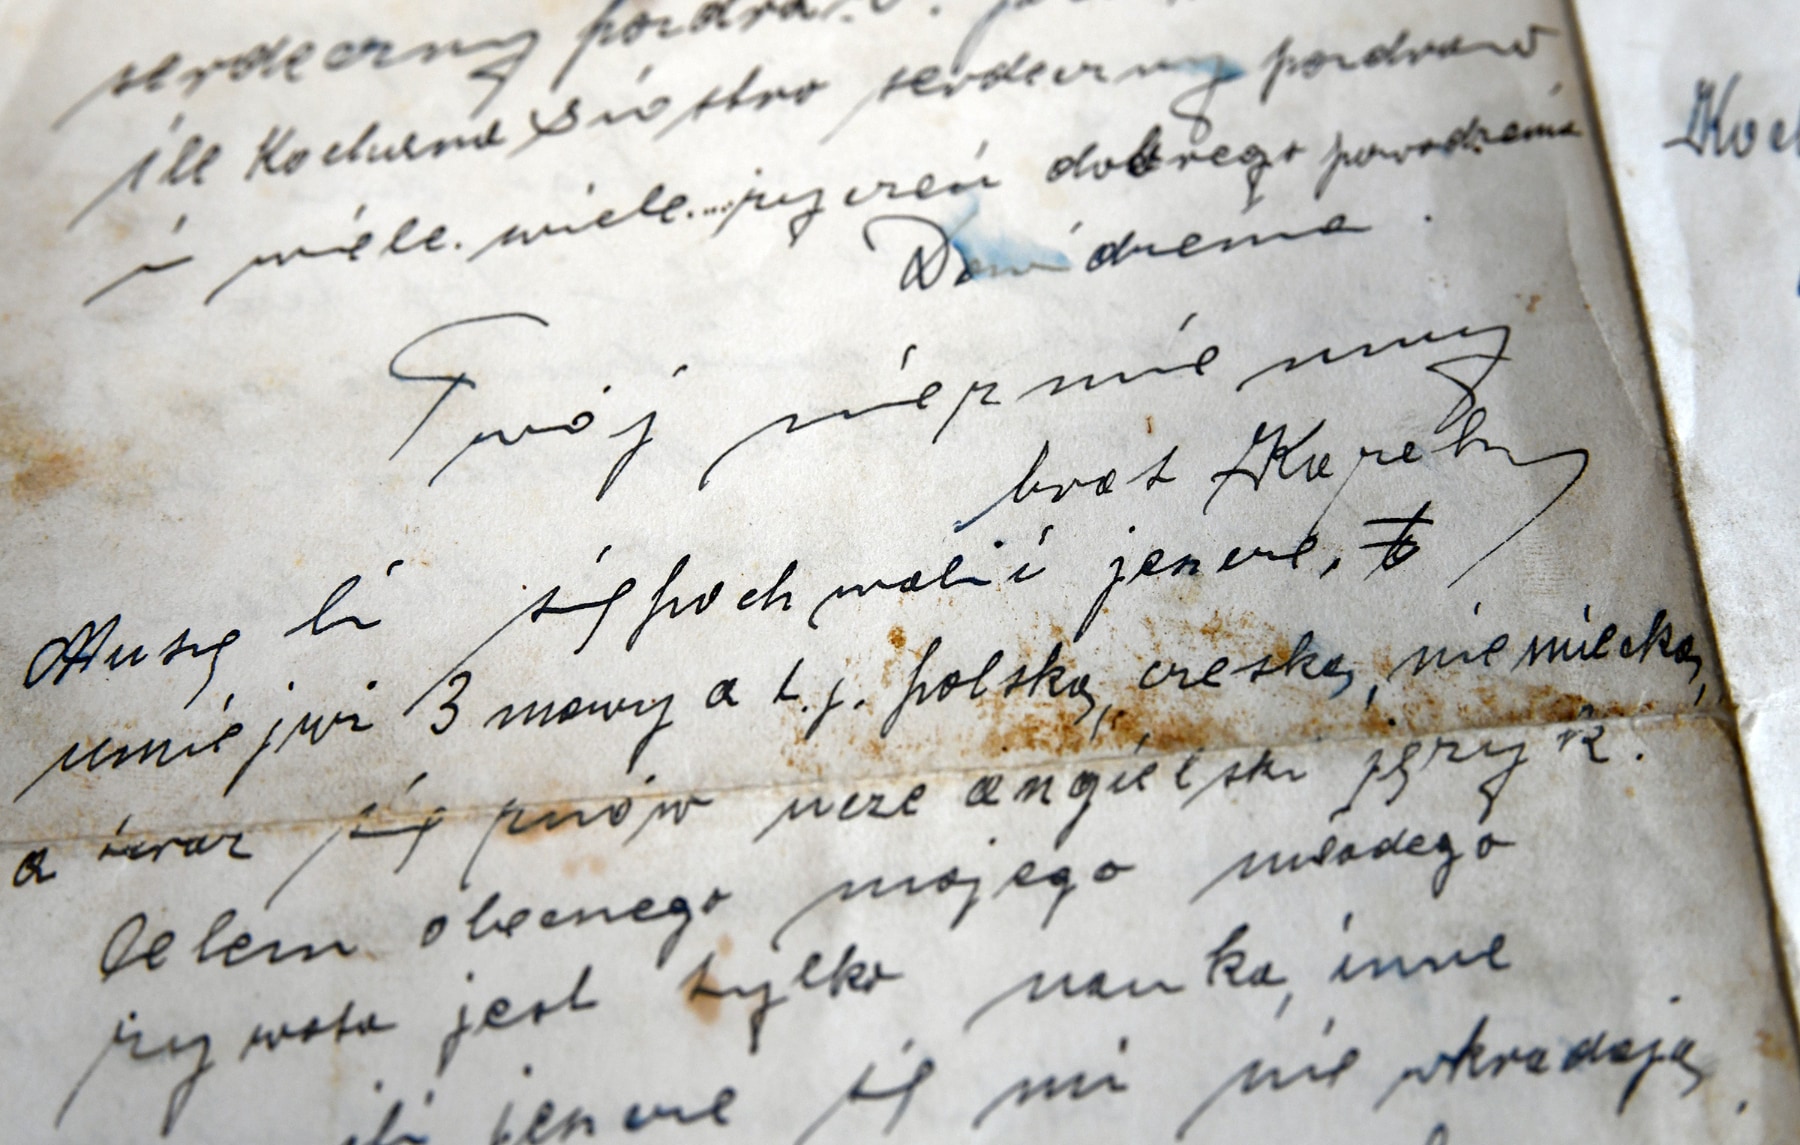 serdeczny pozdraw.
śle Kochana Siostro serdeczny pozdraw
i wiele. wiele... życzeń dobrego powodzenia
Dowidzenia.
Twój niezmienny
brat Karel
Muszę ci się pochwalić jeszcze,
umię już 3 mowy a t.j. polską, czeską, niemiecką,
a teraz się znów uczę angielski język.
Celem obecnego mojego młodego
żywota jest tylko nauka, inne
jeszcze się mi nie wkradają,
Koch